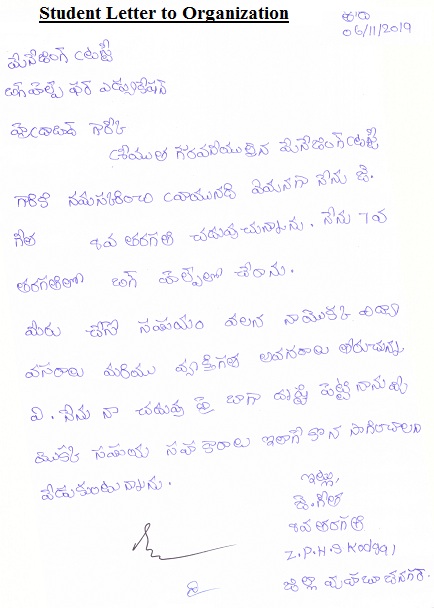 Student Letter to Organization
తేది
06/11/2019
మేనేజింగ్ ట్రస్టీ
బిగ్ హెల్ప్ ఫర్ ఎడ్యుకేషన్
హైదరాబాద్ గారికి
శ్రీయుత గౌరవనీయులైన మేనేజింగ్ ట్రస్టీ
గారికి నమస్కరించి వ్రాయునది ఏమనగా నేను జి.
గీత 8వ తరగతి చదువుచున్నాను. నేను 7వ
తరగతిలో బిగ్ హెల్ప్‌లో చేరాను.
మీరు చేసే సహాయం వలన నా యొక్క విద్యా
వసరాలు మరియు వ్యక్తిగత అవసరాలు తీరుచున్న
వి. నేను నా చదువు పై బాగా దృష్టి పెట్టినాను
యొక్క సహాయ సహకారాలు ఇలాగే కొన సాగించాలని
వేడుకుంటున్నాను.
ఇట్లు,
జి.గీత
8వ తరగతి
Z.P.H.S Kodgal
జిల్లా మహబూబ్ నగర్.